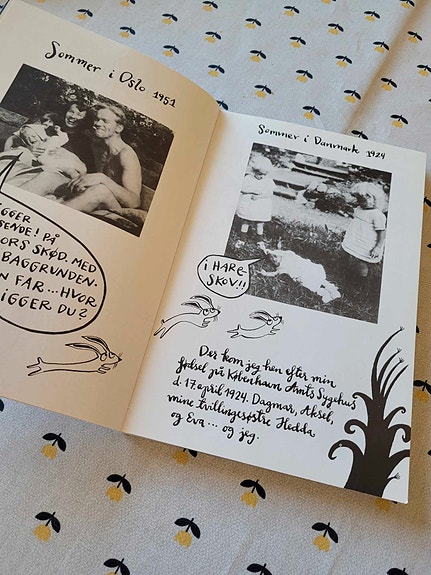 Sommer i Oslo 1951
IGGER
SENDE! PÅ
ORS SKØD. MED
BAGGRUNDEN.
N FAR... HVOR
IGGER DU?
Sommer i Danmark 1924
I HARE-
SKOV!!
Der kom jeg hen efter min
fødsel på Københavns Amts Sygehus
d. 17. april 1924. Dagmar, Aksel,
mine tvillingesøstre Hedda
og Eva... og jeg.